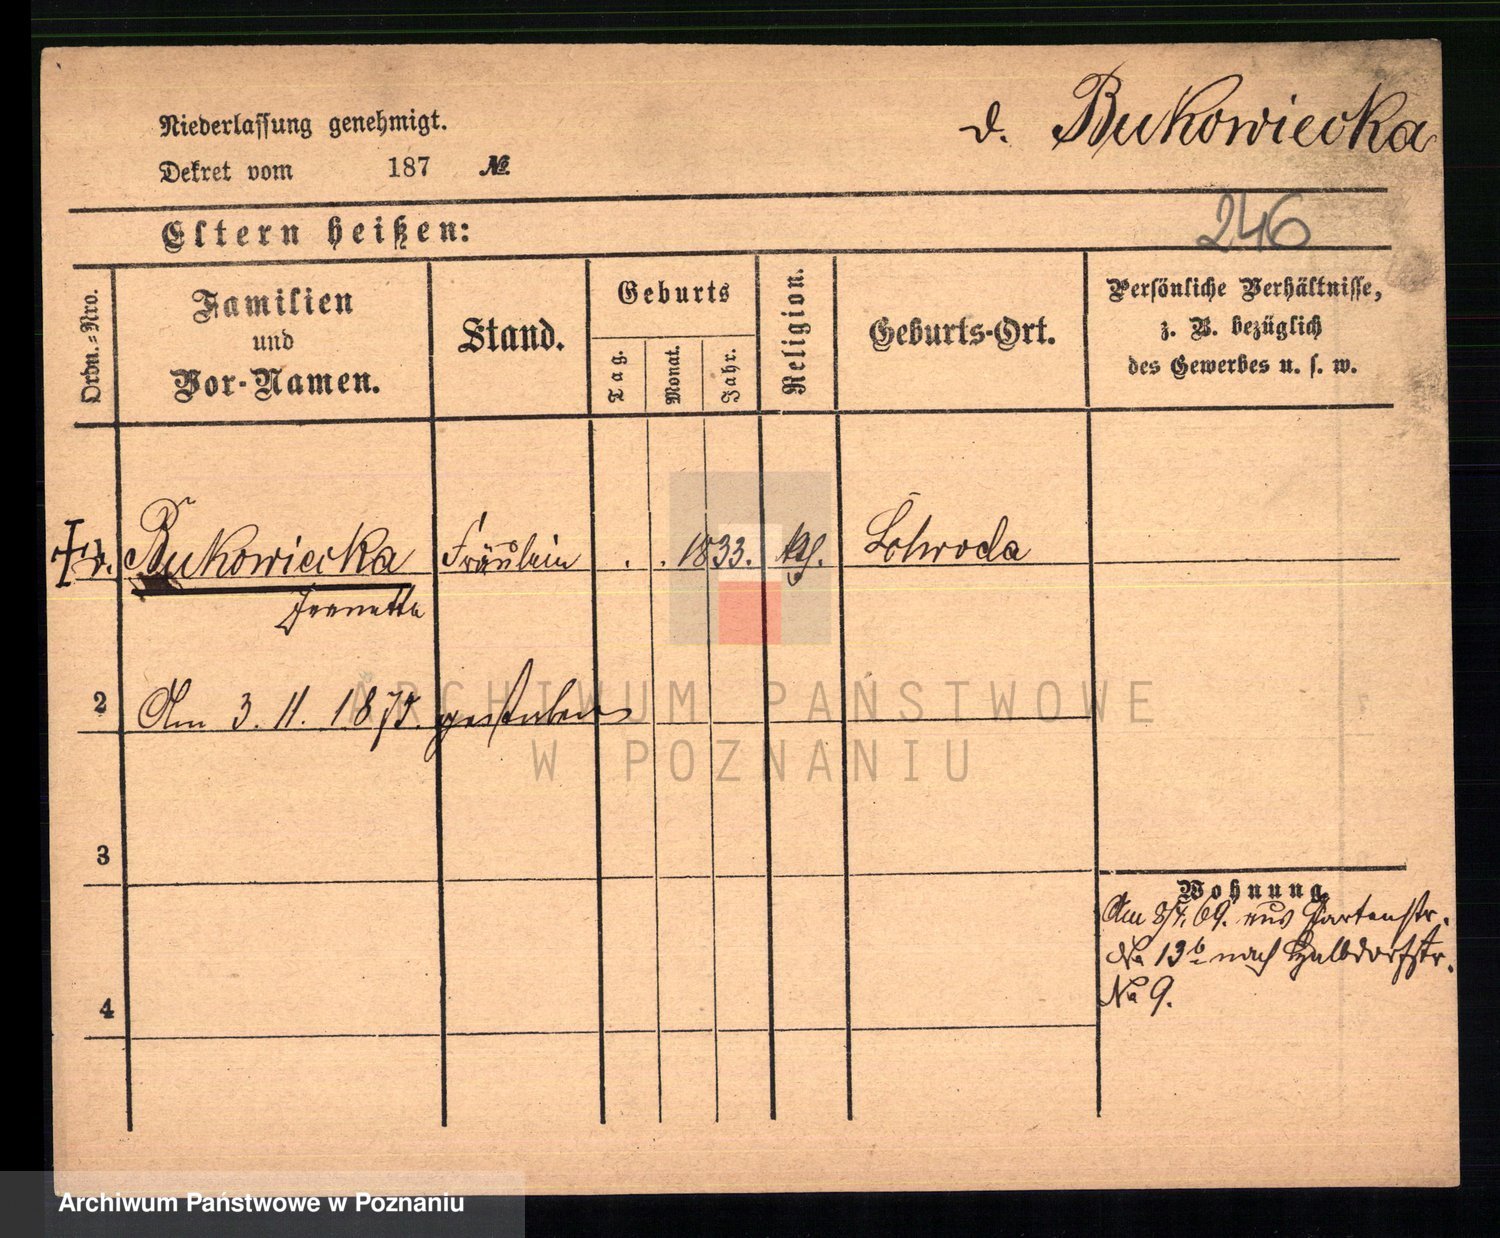 Niederlassung genehmigt.
d. Bukowiecka
Dekret vom 187 №
Eltern heißen:
246
Ordn.-Nro.
Familien
und
Vor-Namen.
Stand.
Geburts
Tag.
Monat.
Jahr.
Religion.
Geburts-Ort.
Persönliche Verhältnisse,
z. B. bezüglich
des Gewerbes u. s. w.
v. Bukowiecka Fräulein . . 1833. kth.
Jeanette
2 Am 3. 11. 1875. gestorben
3
Wohnung
Am 8/4. 69. aus Gartenstr.
No 13b nach Halbdorfstr.
No 9.
4
ARCHIWUM PAŃSTWOWE
W POZNANIU
Archiwum Państwowe w Poznaniu